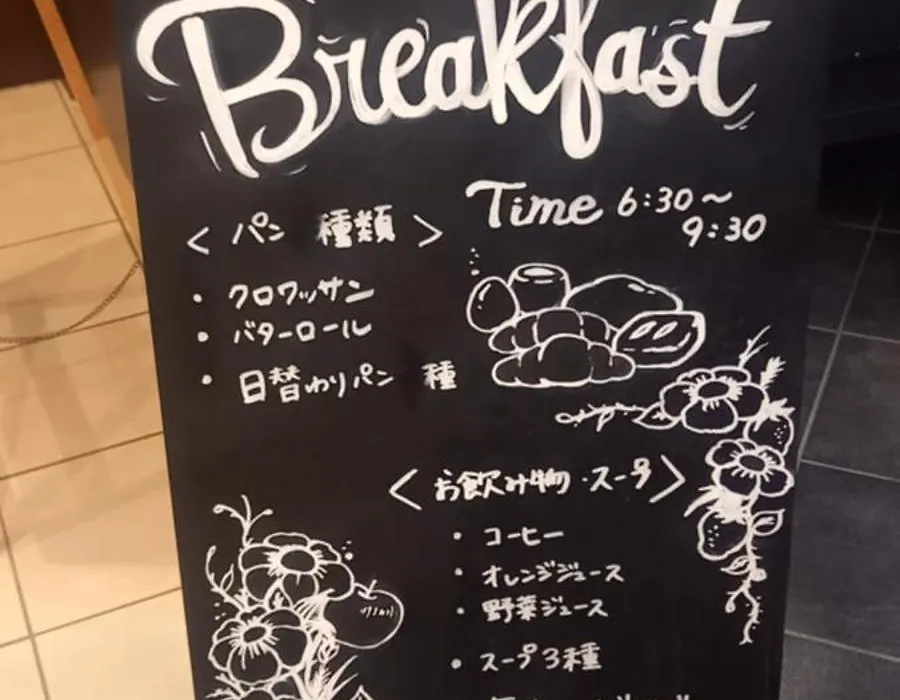 Breakfast
Time 6:30～
9:30
＜ パン 種類 ＞
・ クロワッサン
・ バターロール
・ 日替わりパン 種
＜ お飲み物・スープ ＞
・ コーヒー
・ オレンジジュース
・ 野菜ジュース
・ スープ3種